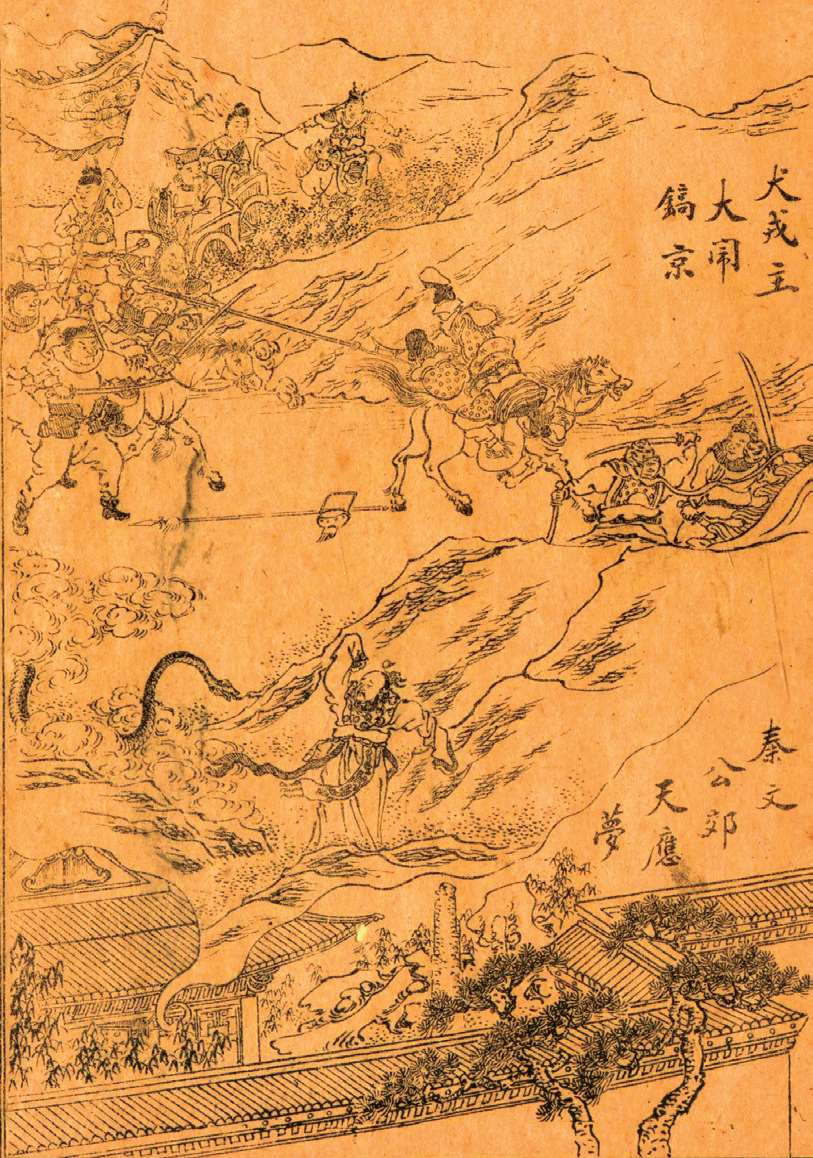 犬戎主
大闹
鎬京
秦文
公郊
天應
夢